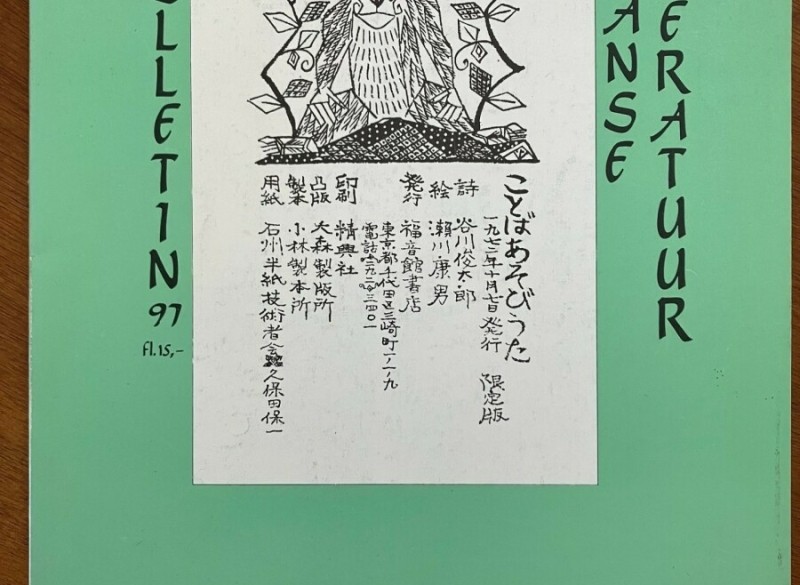 LLETIN 97
fl.15,-
ANSE
ERATUUR
ことばあそびうた
一九七二年十月七日発行 限定版
詩 谷川俊太郎
絵 瀬川康男
発行 福音館書店
東京都千代田区三崎町一ノ一ノ九
電話 二九二 三四〇一
印刷 精興社
凸版 大森製版所
製本 小林製本所
用紙 石州半紙技術者会 久保田保一